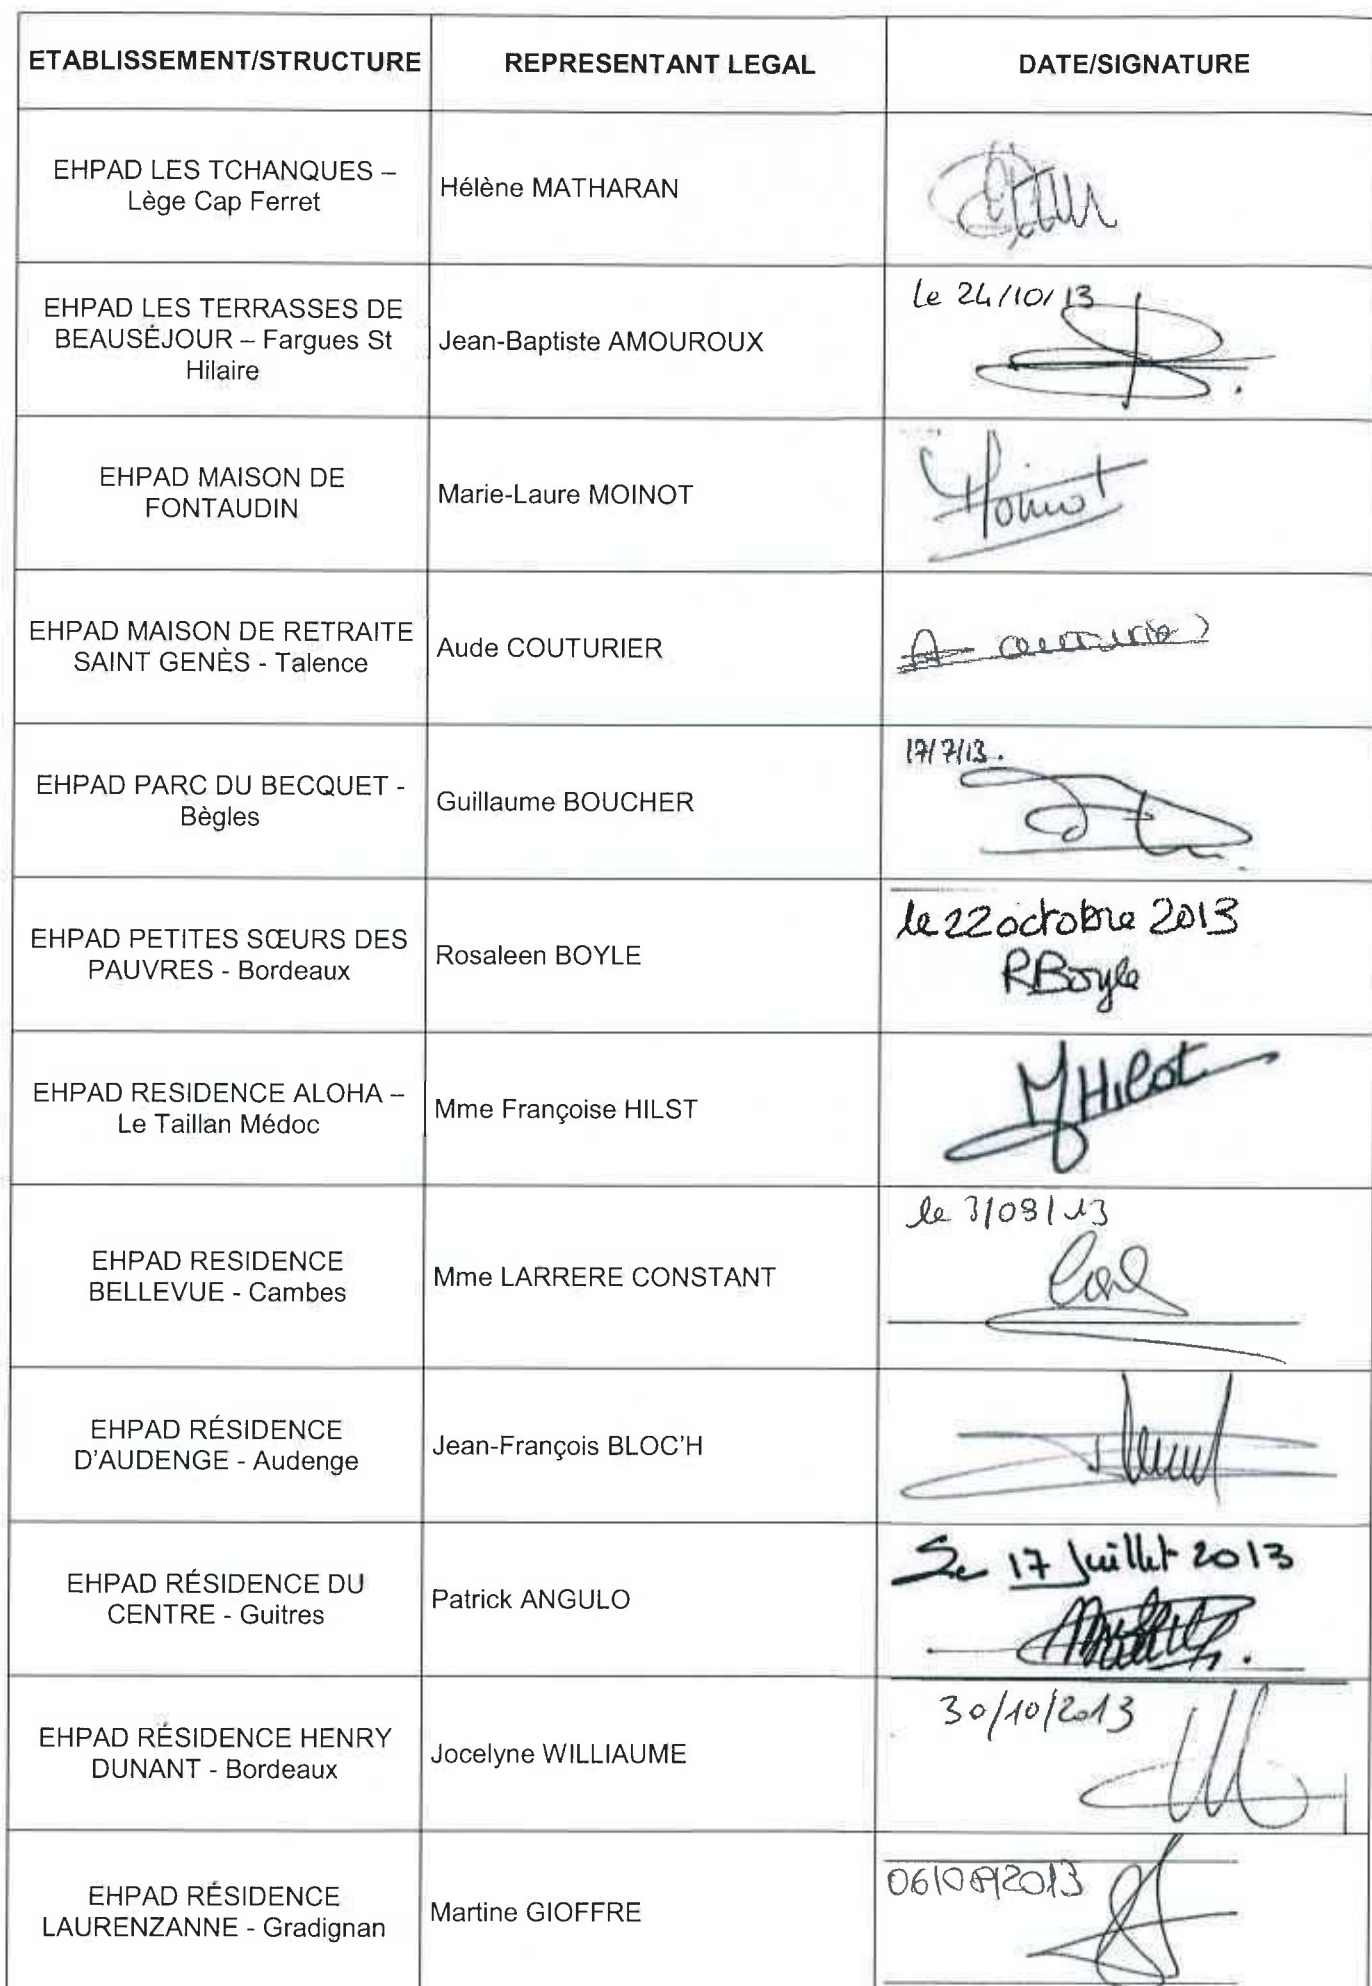 ETABLISSEMENT/STRUCTURE REPRESENTANT LEGAL DATE/SIGNATURE
EHPAD LES TCHANQUES –
Lège Cap Ferret
Hélène MATHARAN
EHPAD LES TERRASSES DE
BEAUSÉJOUR – Fargues St
Hilaire
Jean-Baptiste AMOUROUX
le 24/10/13
EHPAD MAISON DE
FONTAUDIN
Marie-Laure MOINOT
Moinot
EHPAD MAISON DE RETRAITE
SAINT GENÈS - Talence
Aude COUTURIER
EHPAD PARC DU BECQUET -
Bègles
Guillaume BOUCHER
17/7/13.
EHPAD PETITES SŒURS DES
PAUVRES - Bordeaux
Rosaleen BOYLE
le 22 octobre 2013
RBoyle
EHPAD RESIDENCE ALOHA –
Le Taillan Médoc
Mme Françoise HILST
EHPAD RESIDENCE
BELLEVUE - Cambes
Mme LARRERE CONSTANT
le
EHPAD RÉSIDENCE
D'AUDENGE - Audenge
Jean-François BLOC'H
EHPAD RÉSIDENCE DU
CENTRE - Guitres
Patrick ANGULO
17 Juillet 2013
EHPAD RÉSIDENCE HENRY
DUNANT - Bordeaux
Jocelyne WILLIAUME
30/10/2013
EHPAD RÉSIDENCE
LAURENZANNE - Gradignan
Martine GIOFFRE